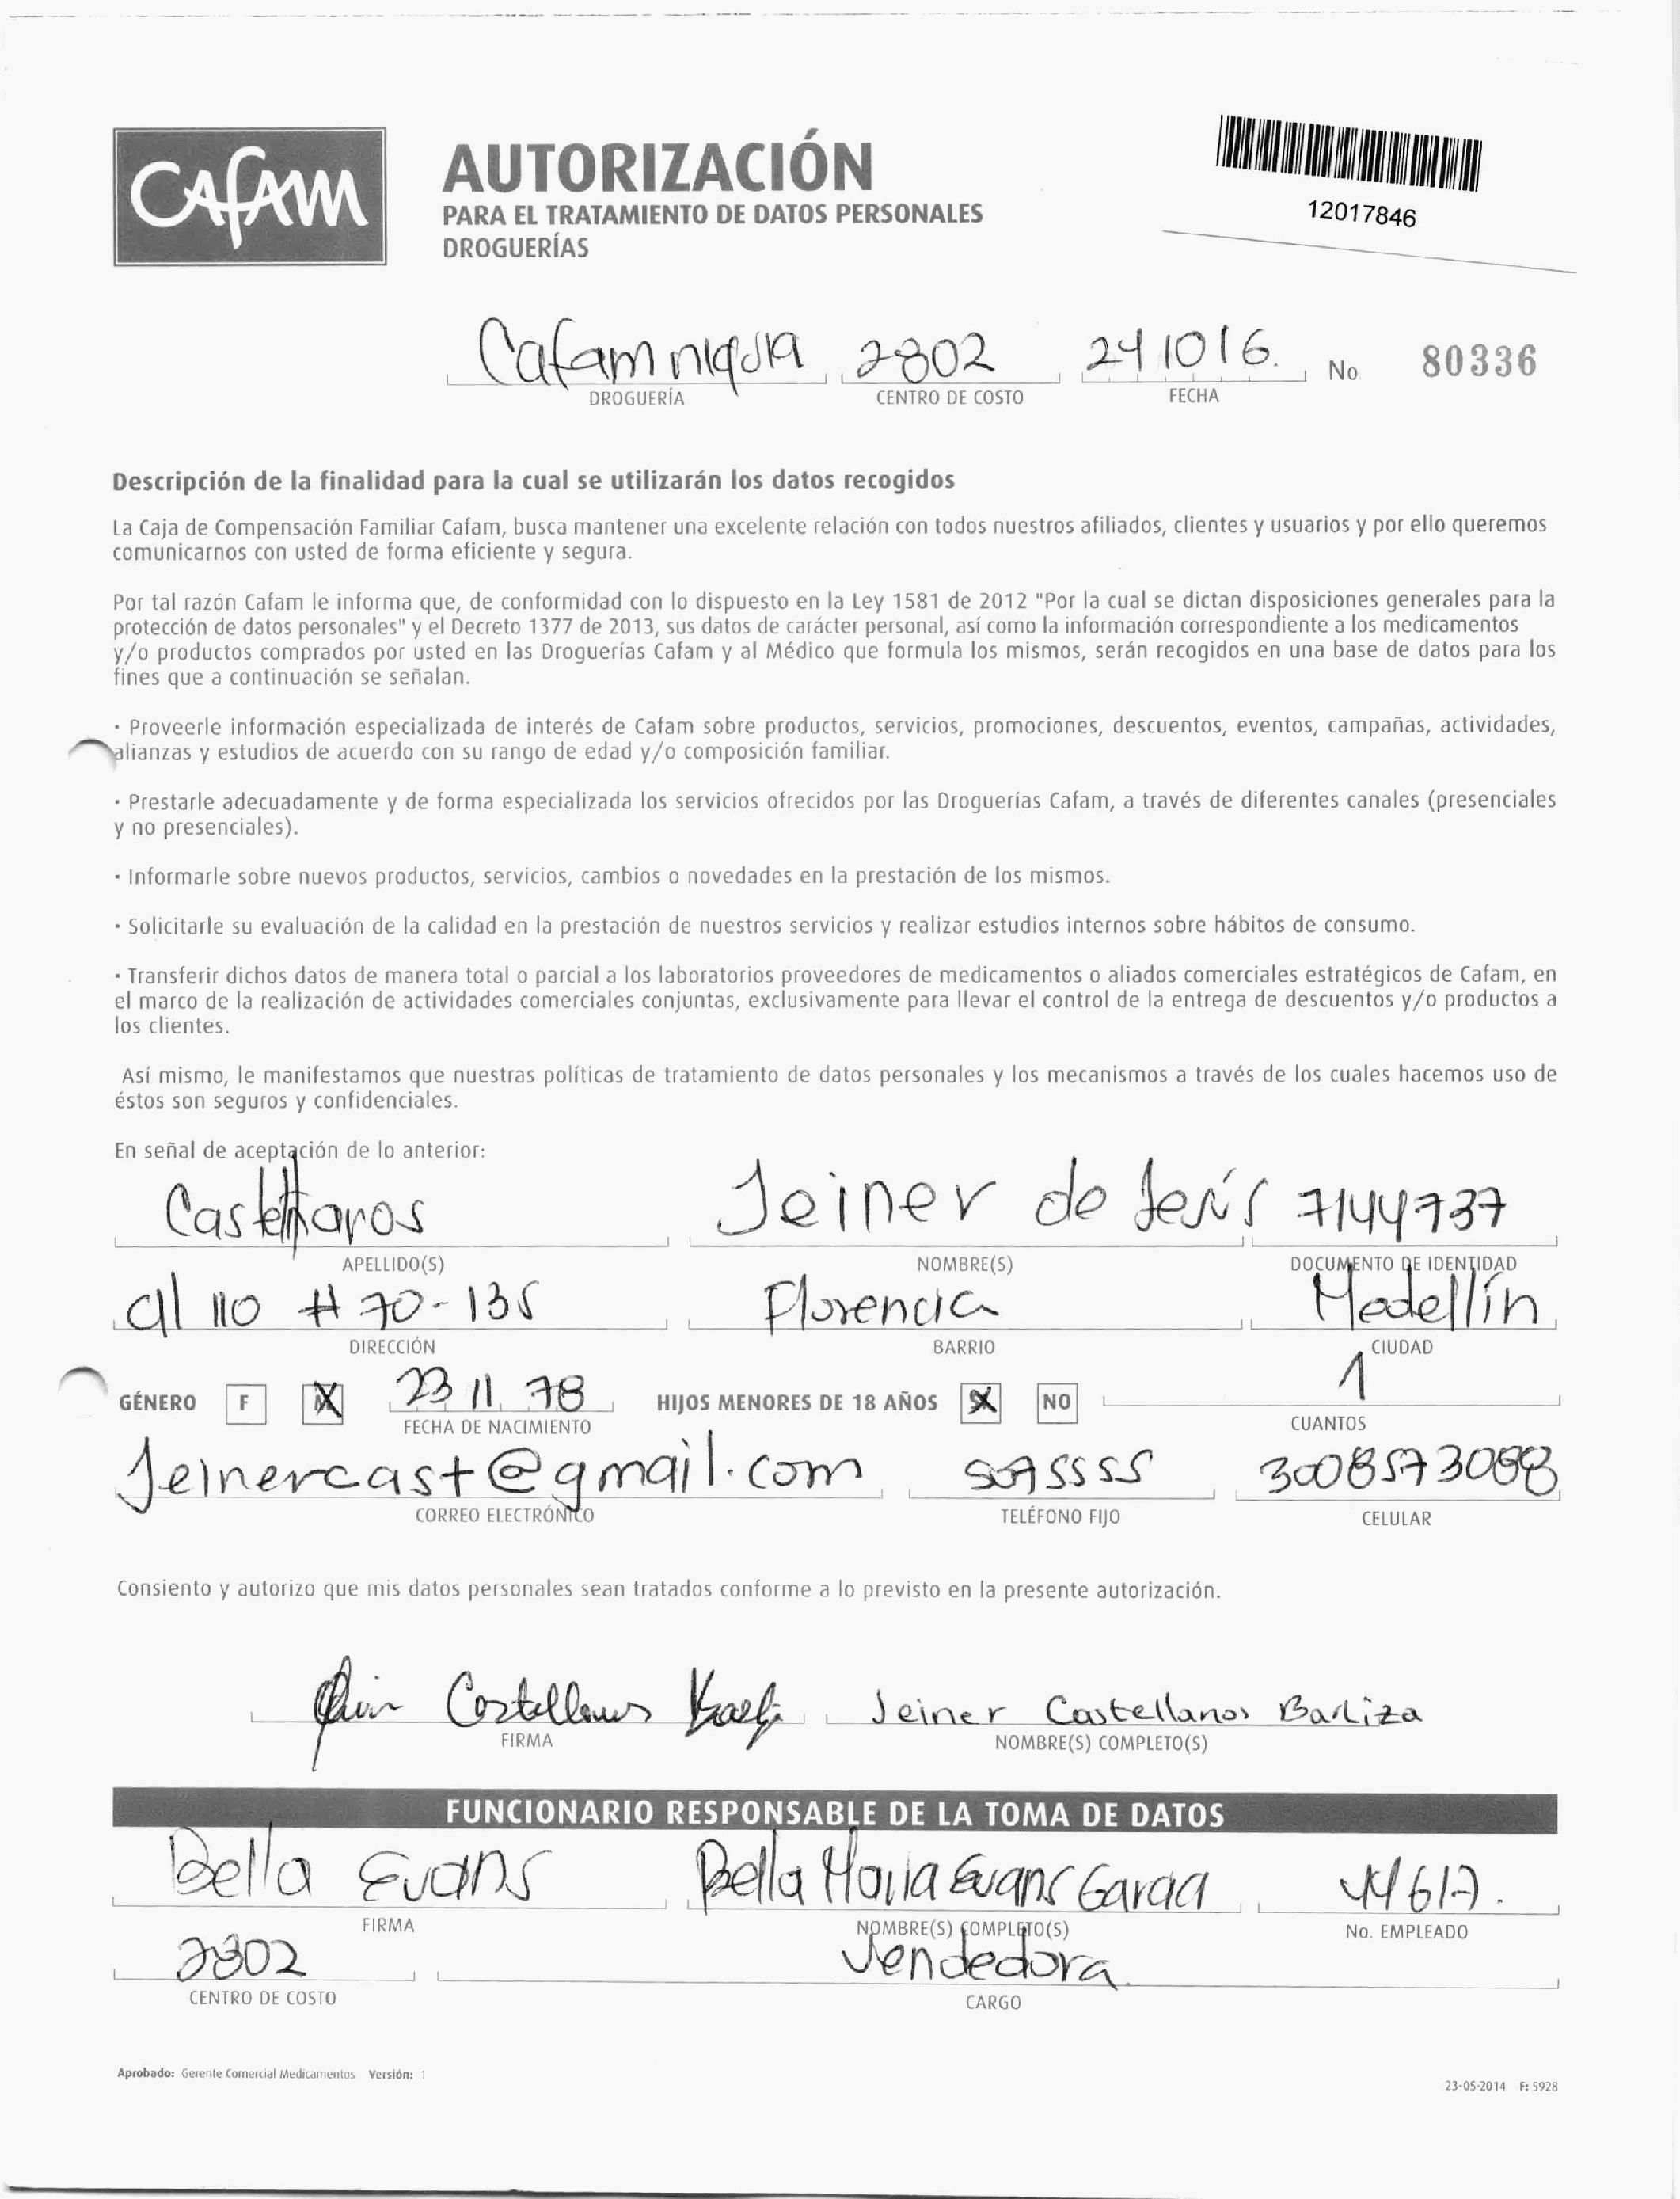 CAFAM
AUTORIZACIÓN
PARA EL TRATAMIENTO DE DATOS PERSONALES
DROGUERÍAS
12017846
Cafam niquia 2802 241016. No. 80336
DROGUERÍA CENTRO DE COSTO FECHA
Descripción de la finalidad para la cual se utilizarán los datos recogidos
La Caja de Compensación Familiar Cafam, busca mantener una excelente relación con todos nuestros afiliados, clientes y usuarios y por ello queremos
comunicarnos con usted de forma eficiente y segura.
Por tal razón Cafam le informa que, de conformidad con lo dispuesto en la Ley 1581 de 2012 "Por la cual se dictan disposiciones generales para la
protección de datos personales" y el Decreto 1377 de 2013, sus datos de carácter personal, así como la información correspondiente a los medicamentos
y/o productos comprados por usted en las Droguerías Cafam y al Médico que formula los mismos, serán recogidos en una base de datos para los
fines que a continuación se señalan.
· Proveerle información especializada de interés de Cafam sobre productos, servicios, promociones, descuentos, eventos, campañas, actividades,
alianzas y estudios de acuerdo con su rango de edad y/o composición familiar.
· Prestarle adecuadamente y de forma especializada los servicios ofrecidos por las Droguerías Cafam, a través de diferentes canales (presenciales
y no presenciales).
· Informarle sobre nuevos productos, servicios, cambios o novedades en la prestación de los mismos.
· Solicitarle su evaluación de la calidad en la prestación de nuestros servicios y realizar estudios internos sobre hábitos de consumo.
· Transferir dichos datos de manera total o parcial a los laboratorios proveedores de medicamentos o aliados comerciales estratégicos de Cafam, en
el marco de la realización de actividades comerciales conjuntas, exclusivamente para llevar el control de la entrega de descuentos y/o productos a
los clientes.
Así mismo, le manifestamos que nuestras políticas de tratamiento de datos personales y los mecanismos a través de los cuales hacemos uso de
éstos son seguros y confidenciales.
En señal de aceptación de lo anterior:
Jeiner de Jesús 7144737
APELLIDO(S) NOMBRE(S) DOCUMENTO DE IDENTIDAD
Cll 110 # 70-135 Florencia Medellín
DIRECCIÓN BARRIO CIUDAD
GÉNERO F M 23 11 78 HIJOS MENORES DE 18 AÑOS SI NO 1
FECHA DE NACIMIENTO CUANTOS
Jeinercast@gmail.com
CORREO ELECTRÓNICO TELÉFONO FIJO CELULAR
Consiento y autorizo que mis datos personales sean tratados conforme a lo previsto en la presente autorización.
Castellanos Jeiner Castellanos Barliza
FIRMA NOMBRE(S) COMPLETO(S)
FUNCIONARIO RESPONSABLE DE LA TOMA DE DATOS
Bella Evans Bella Maria Evans Garcia
FIRMA NOMBRE(S) COMPLETO(S) No. EMPLEADO
2802 Vendedora.
CENTRO DE COSTO CARGO
Aprobado: Gerente Comercial Medicamentos Versión: 1
23-05-2014 F: 5928